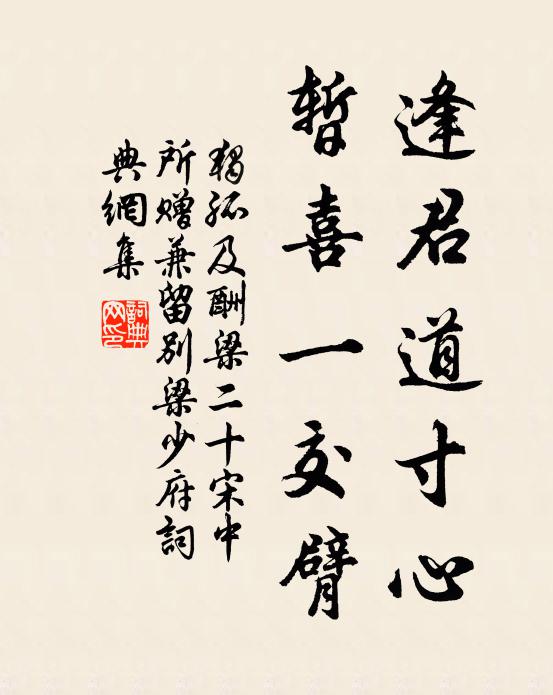 逢君道寸心
暫喜一交臂
獨孤及酬梁二十宋中
所贈兼留別梁少府詞
典網集
詞典
网印